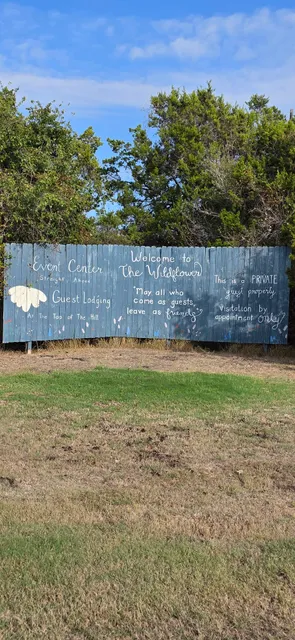 Event Center
Straight Ahead
Guest Lodging
At The Top of The Hill
Welcome to
The Wildflower
"May all who
come as guests,
leave as friends"
This is a PRIVATE
guest property.
Visitation by
appointment ONLY